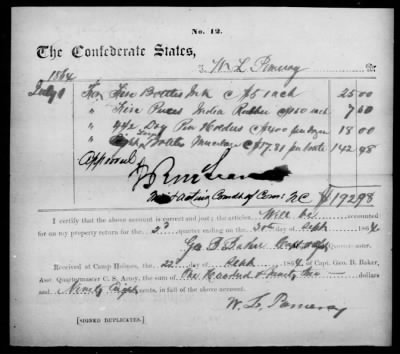 No. 12.
The Confederate States,
To W. L. Pomeroy Dr.
1864
July 9 For Five Bottles Ink @ $5 each 25.00
" Five Pieces India Rubber @ 1.50 each 7.50
" 4 1/2 Doz Pen Holders @ $4.00 per dozen 18.00
" Eight Bottles Mucilage @ $17.81 per bottle 142.48
Approved
$192.98
I certify that the above account is correct and just; the articles, Will be accounted
for on my property return for the 3d quarter ending on the 30th day of Sept 1864
Geo. B. Baker Capt Quartermaster.
Received at Camp Holmes, the 22 day of Sept 1864, of Capt. Geo. B. Baker,
Asst. Quartermaster C. S. Army, the sum of One Hundred & Ninety Two dollars
and Ninety Eight cents, in full of the above account.
W. L. Pomeroy
[SIGNED DUPLICATES.]